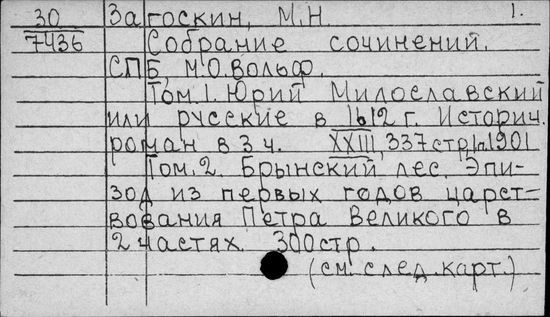 30 Загоскин, М.Н. 1.
7436 Собрание сочинений.
СПБ, М.О.Вольф.
Том.1. Юрий Милославский
или русские в 1612 г. Историч.
роман в 3 ч. XXIII, 337стр, 1901
Том.2. Брынский лес. Эпи-
зод из первых годов царст-
вования Петра Великого в
2 частях. 300стр.
(см. след. карт.)